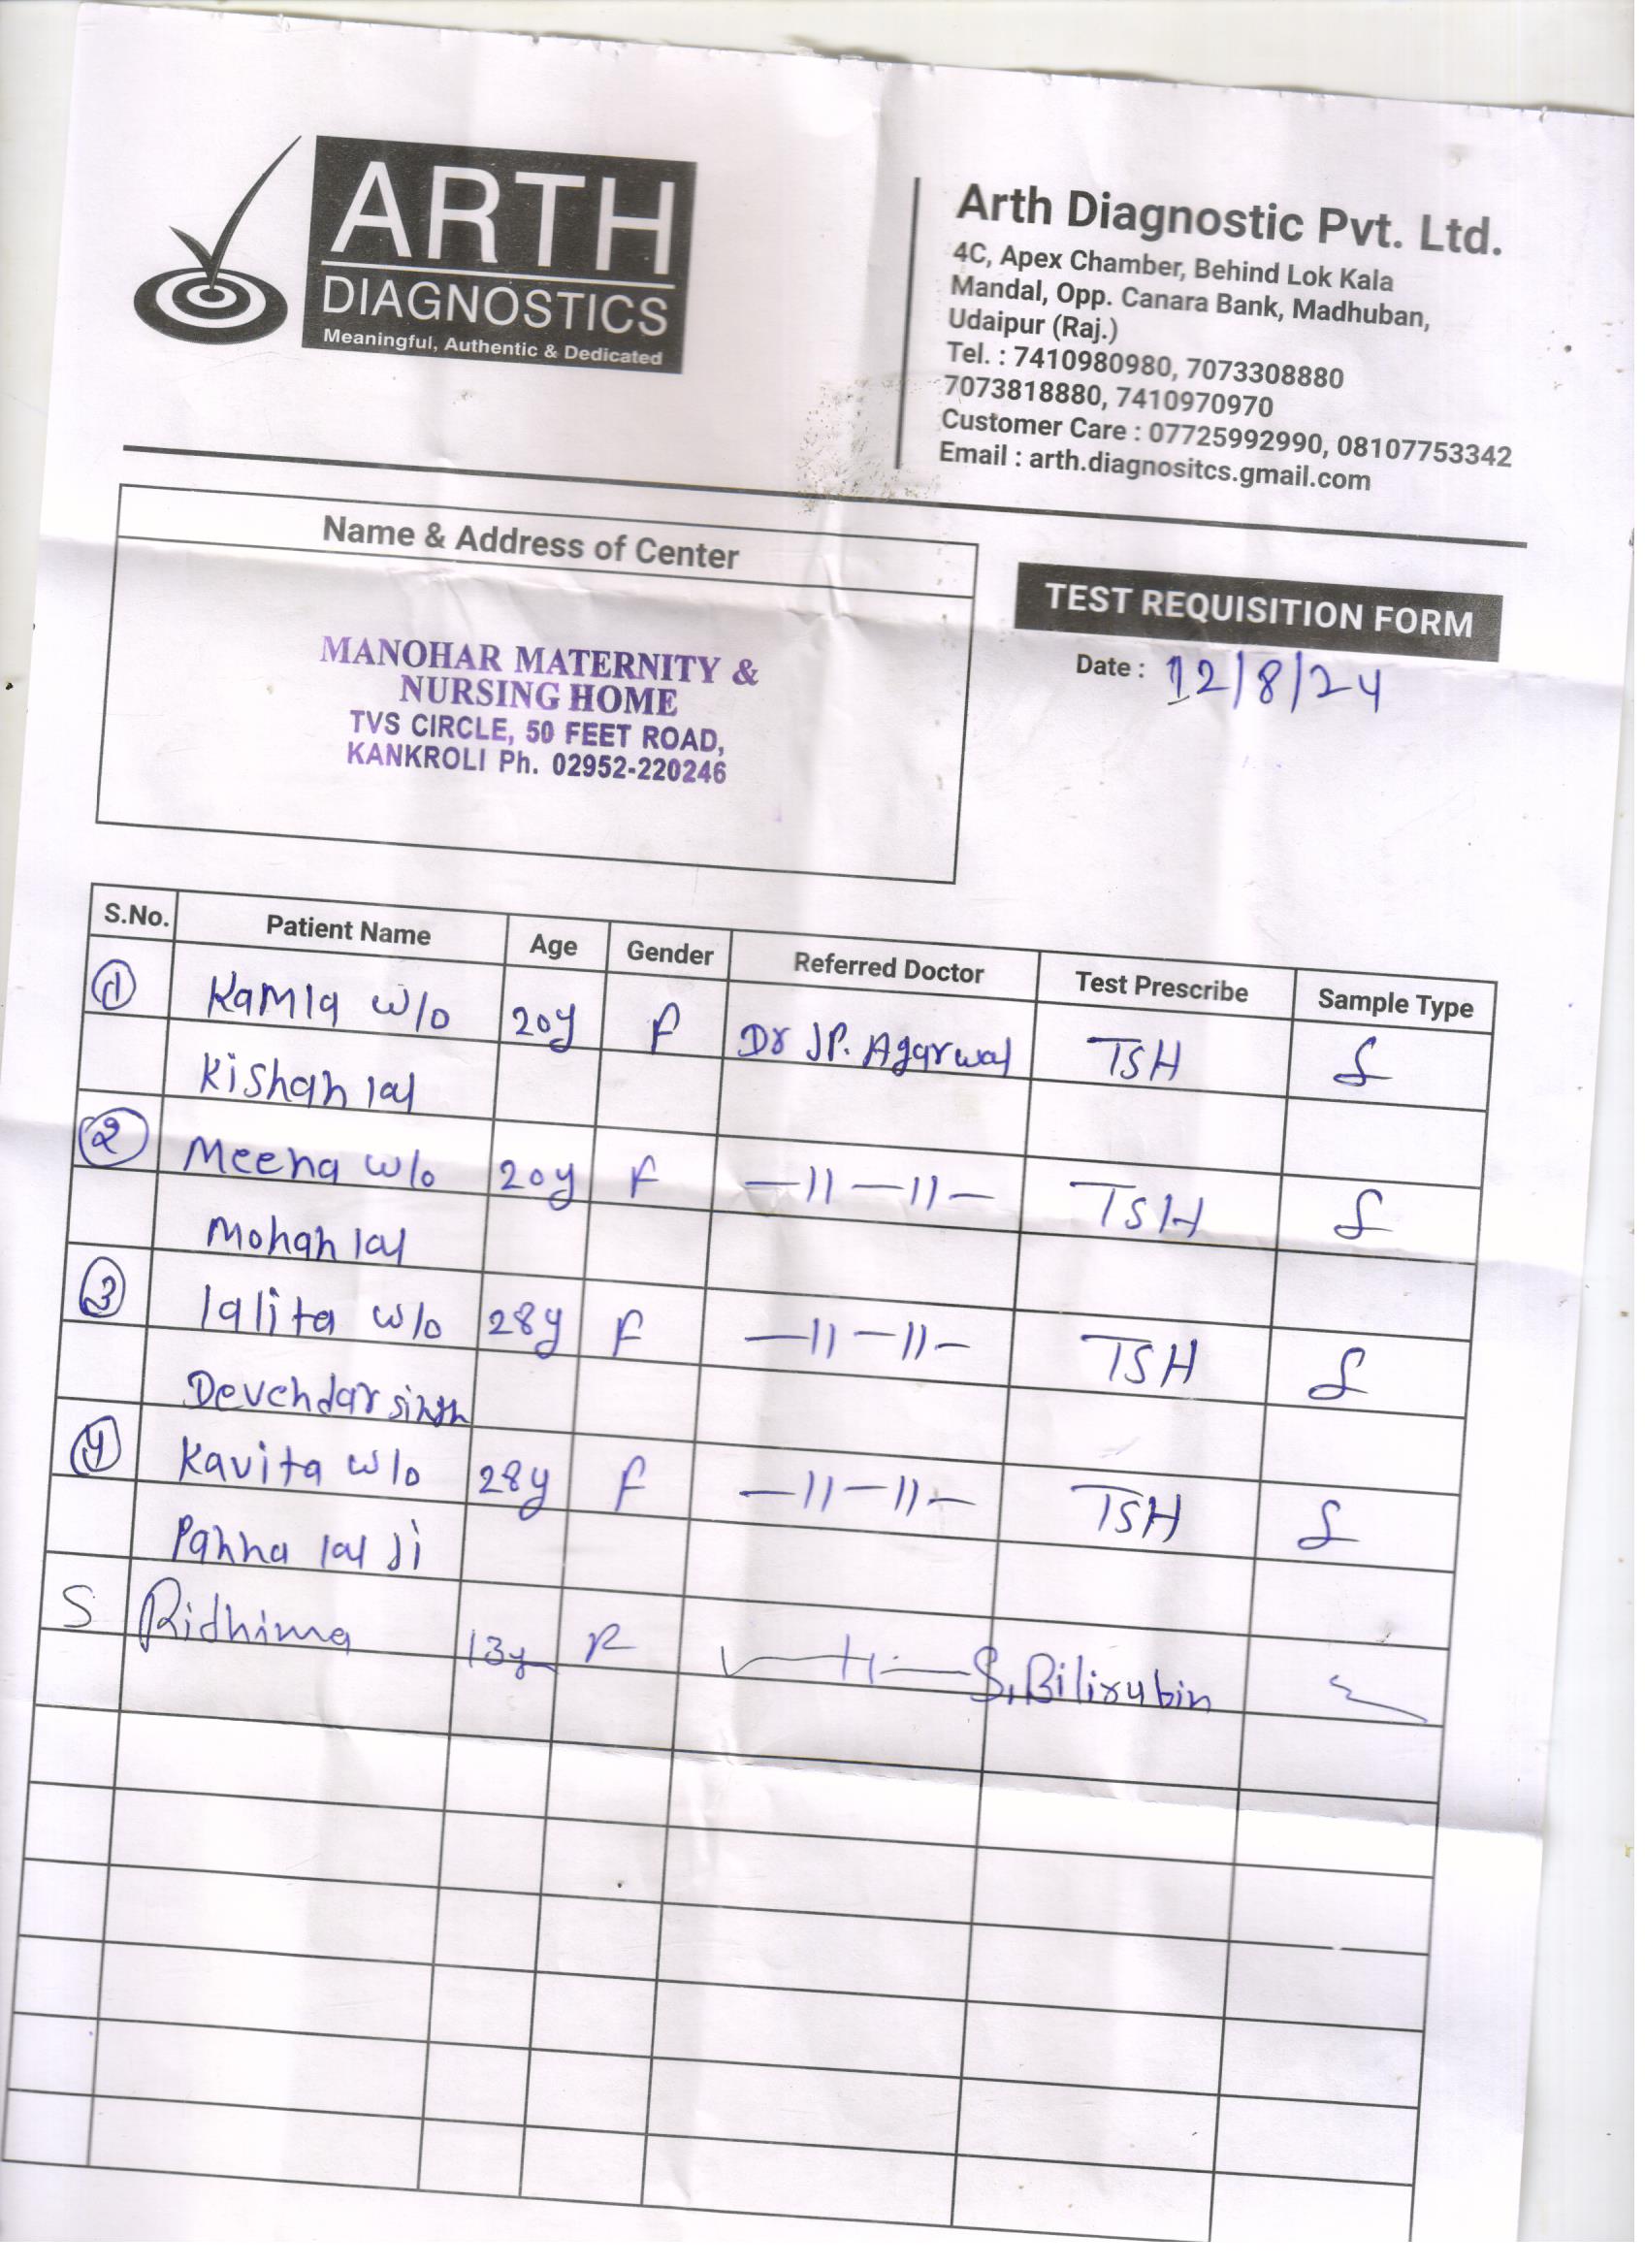 ARTH
DIAGNOSTICS
Meaningful, Authentic & Dedicated
Arth Diagnostic Pvt. Ltd.
4C, Apex Chamber, Behind Lok Kala
Mandal, Opp. Canara Bank, Madhuban,
Udaipur (Raj.)
Tel. : 7410980980, 7073308880
7073818880, 7410970970
Customer Care : 07725992990, 08107753342
Email : arth.diagnositcs.gmail.com
Name & Address of Center
MANOHAR MATERNITY &
NURSING HOME
TVS CIRCLE, 50 FEET ROAD,
KANKROLI Ph. 02952-220246
TEST REQUISITION FORM
Date : 12/8/24
S.No. Patient Name Age Gender Referred Doctor Test Prescribe Sample Type
1 Kamla w/o 20y F Dr JP. Agarwal TSH S
Kishan lal
2 Meena w/o 20y F —11—11— TSH S
Mohan lal
3 lalita w/o 28y F —11—11— TSH S
Devendar singh
4 Kavita w/o 28y F —11—11— TSH S
Panna lal Ji
5 Ridhima 13y F S. Bilirubin